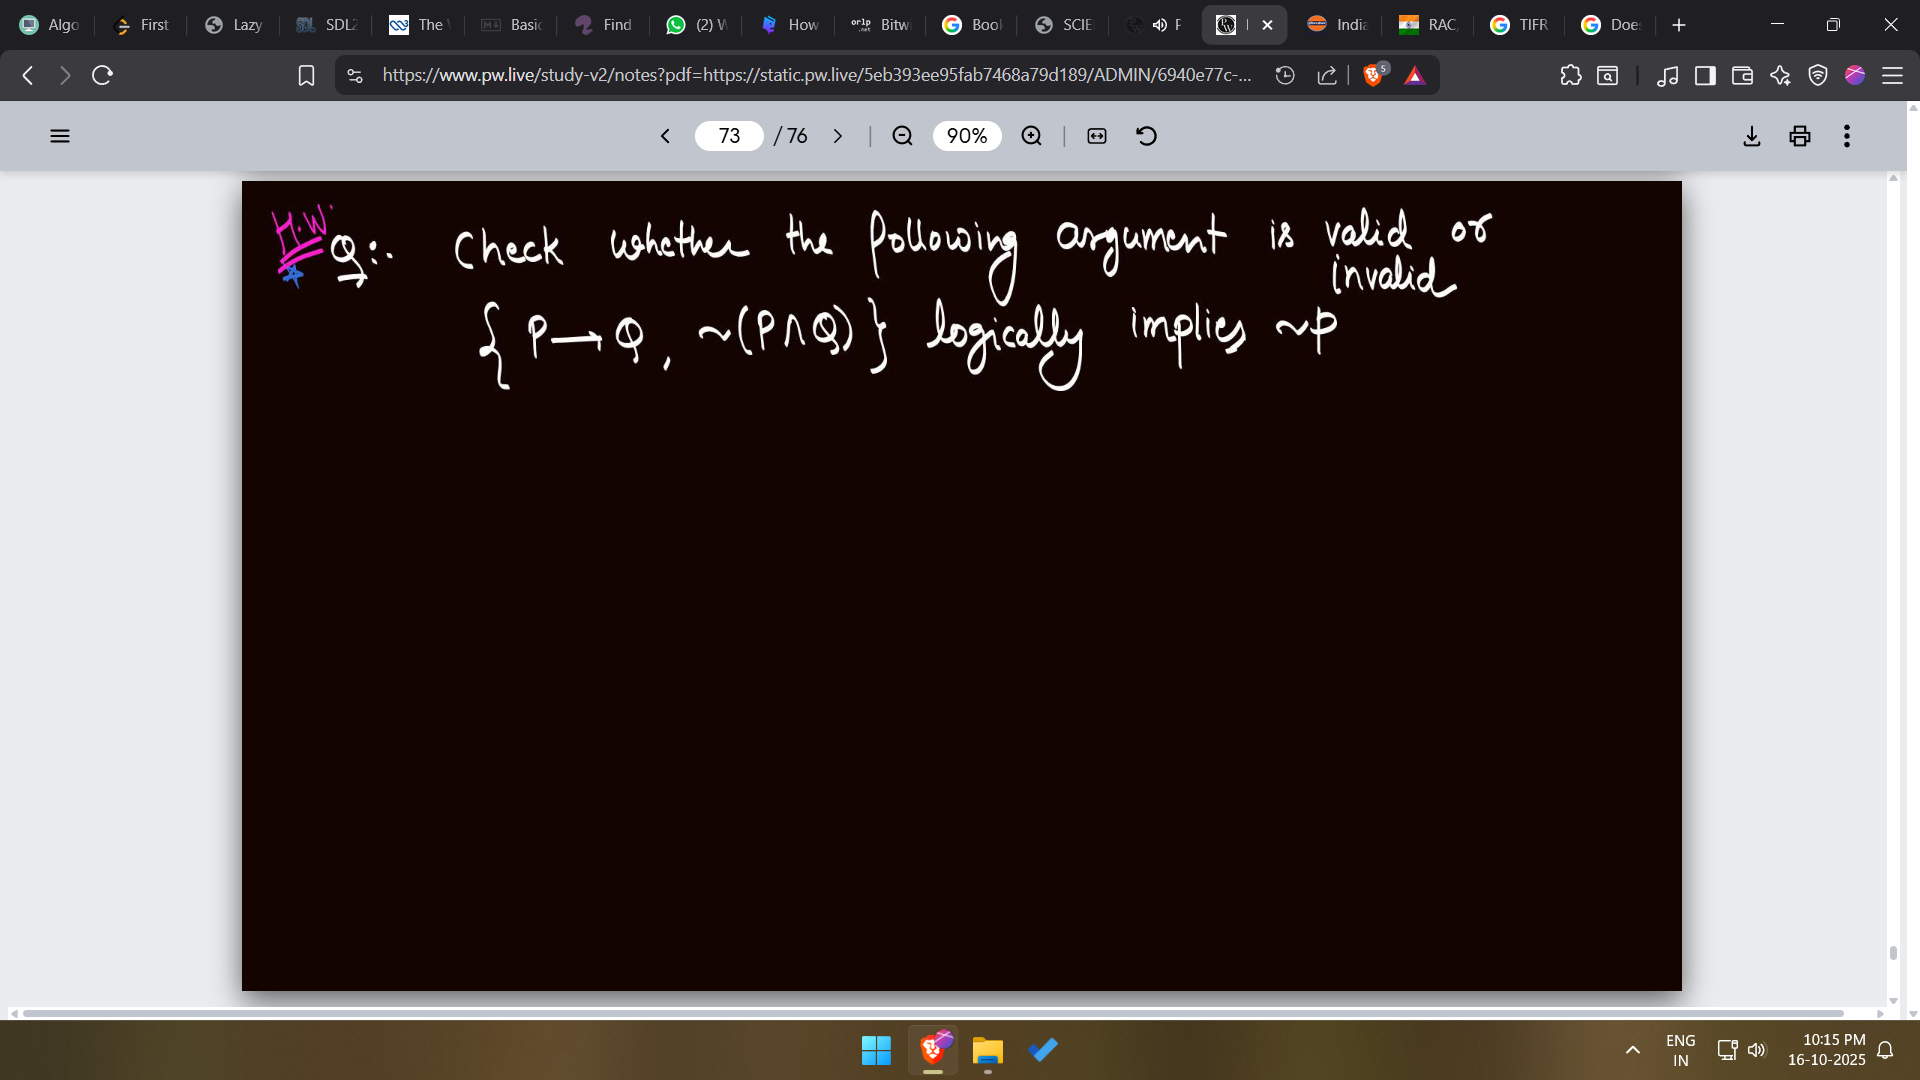 Algo First Lazy SDL2 The Basic Find (2) W How orlp .net Bitwi Book SCIE India RAC, TIFR Does
https://www.pw.live/study-v2/notes?pdf=https://static.pw.live/5eb393ee95fab7468a79d189/ADMIN/6940e77c-... 5
73 / 76 90%
H.W.
Q:- Check whether the following argument is valid or
invalid
{ P → Q, ~(P ∧ Q) } logically implies ~P
ENG 10:15 PM
IN 16-10-2025